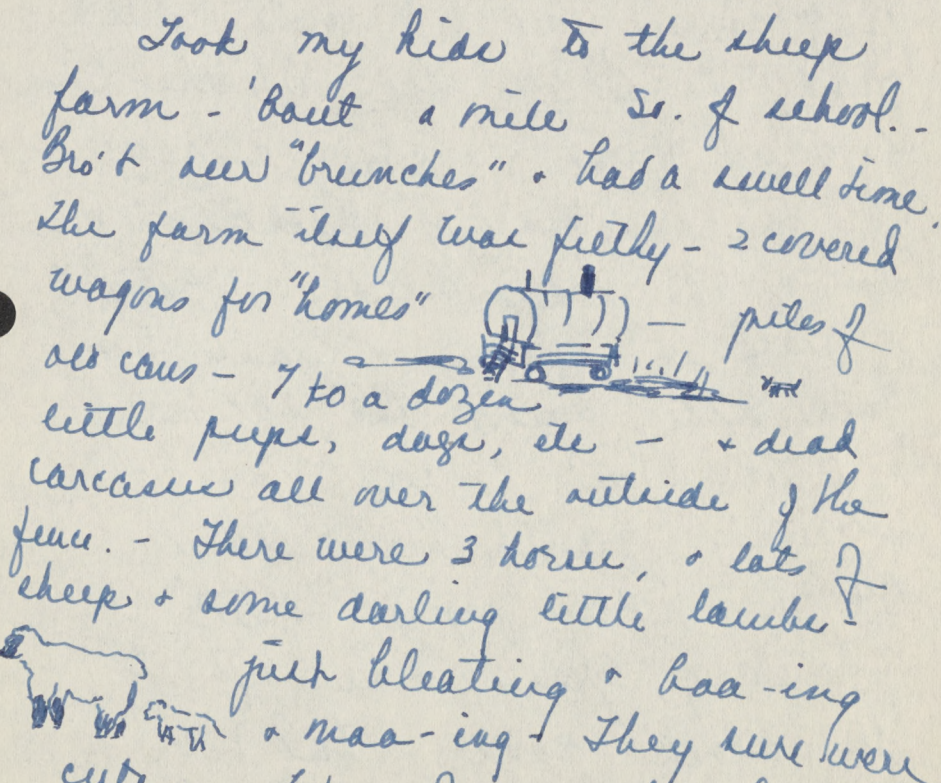 Took my kids to the sheep
farm - 'bout a mile So. of school. -
Bro't our "brunches" & had a swell time.
The farm itself was filthy - 2 covered
wagons for "homes" — piles of
old cans - 7 to a dozen
little pups, dogs, etc - & dead
carcasses all over the outside of the
fence. - There were 3 horses, & lots of
sheep & some darling little lambs -
just bleating & baa-ing
& maa-ing - They sure were
cute